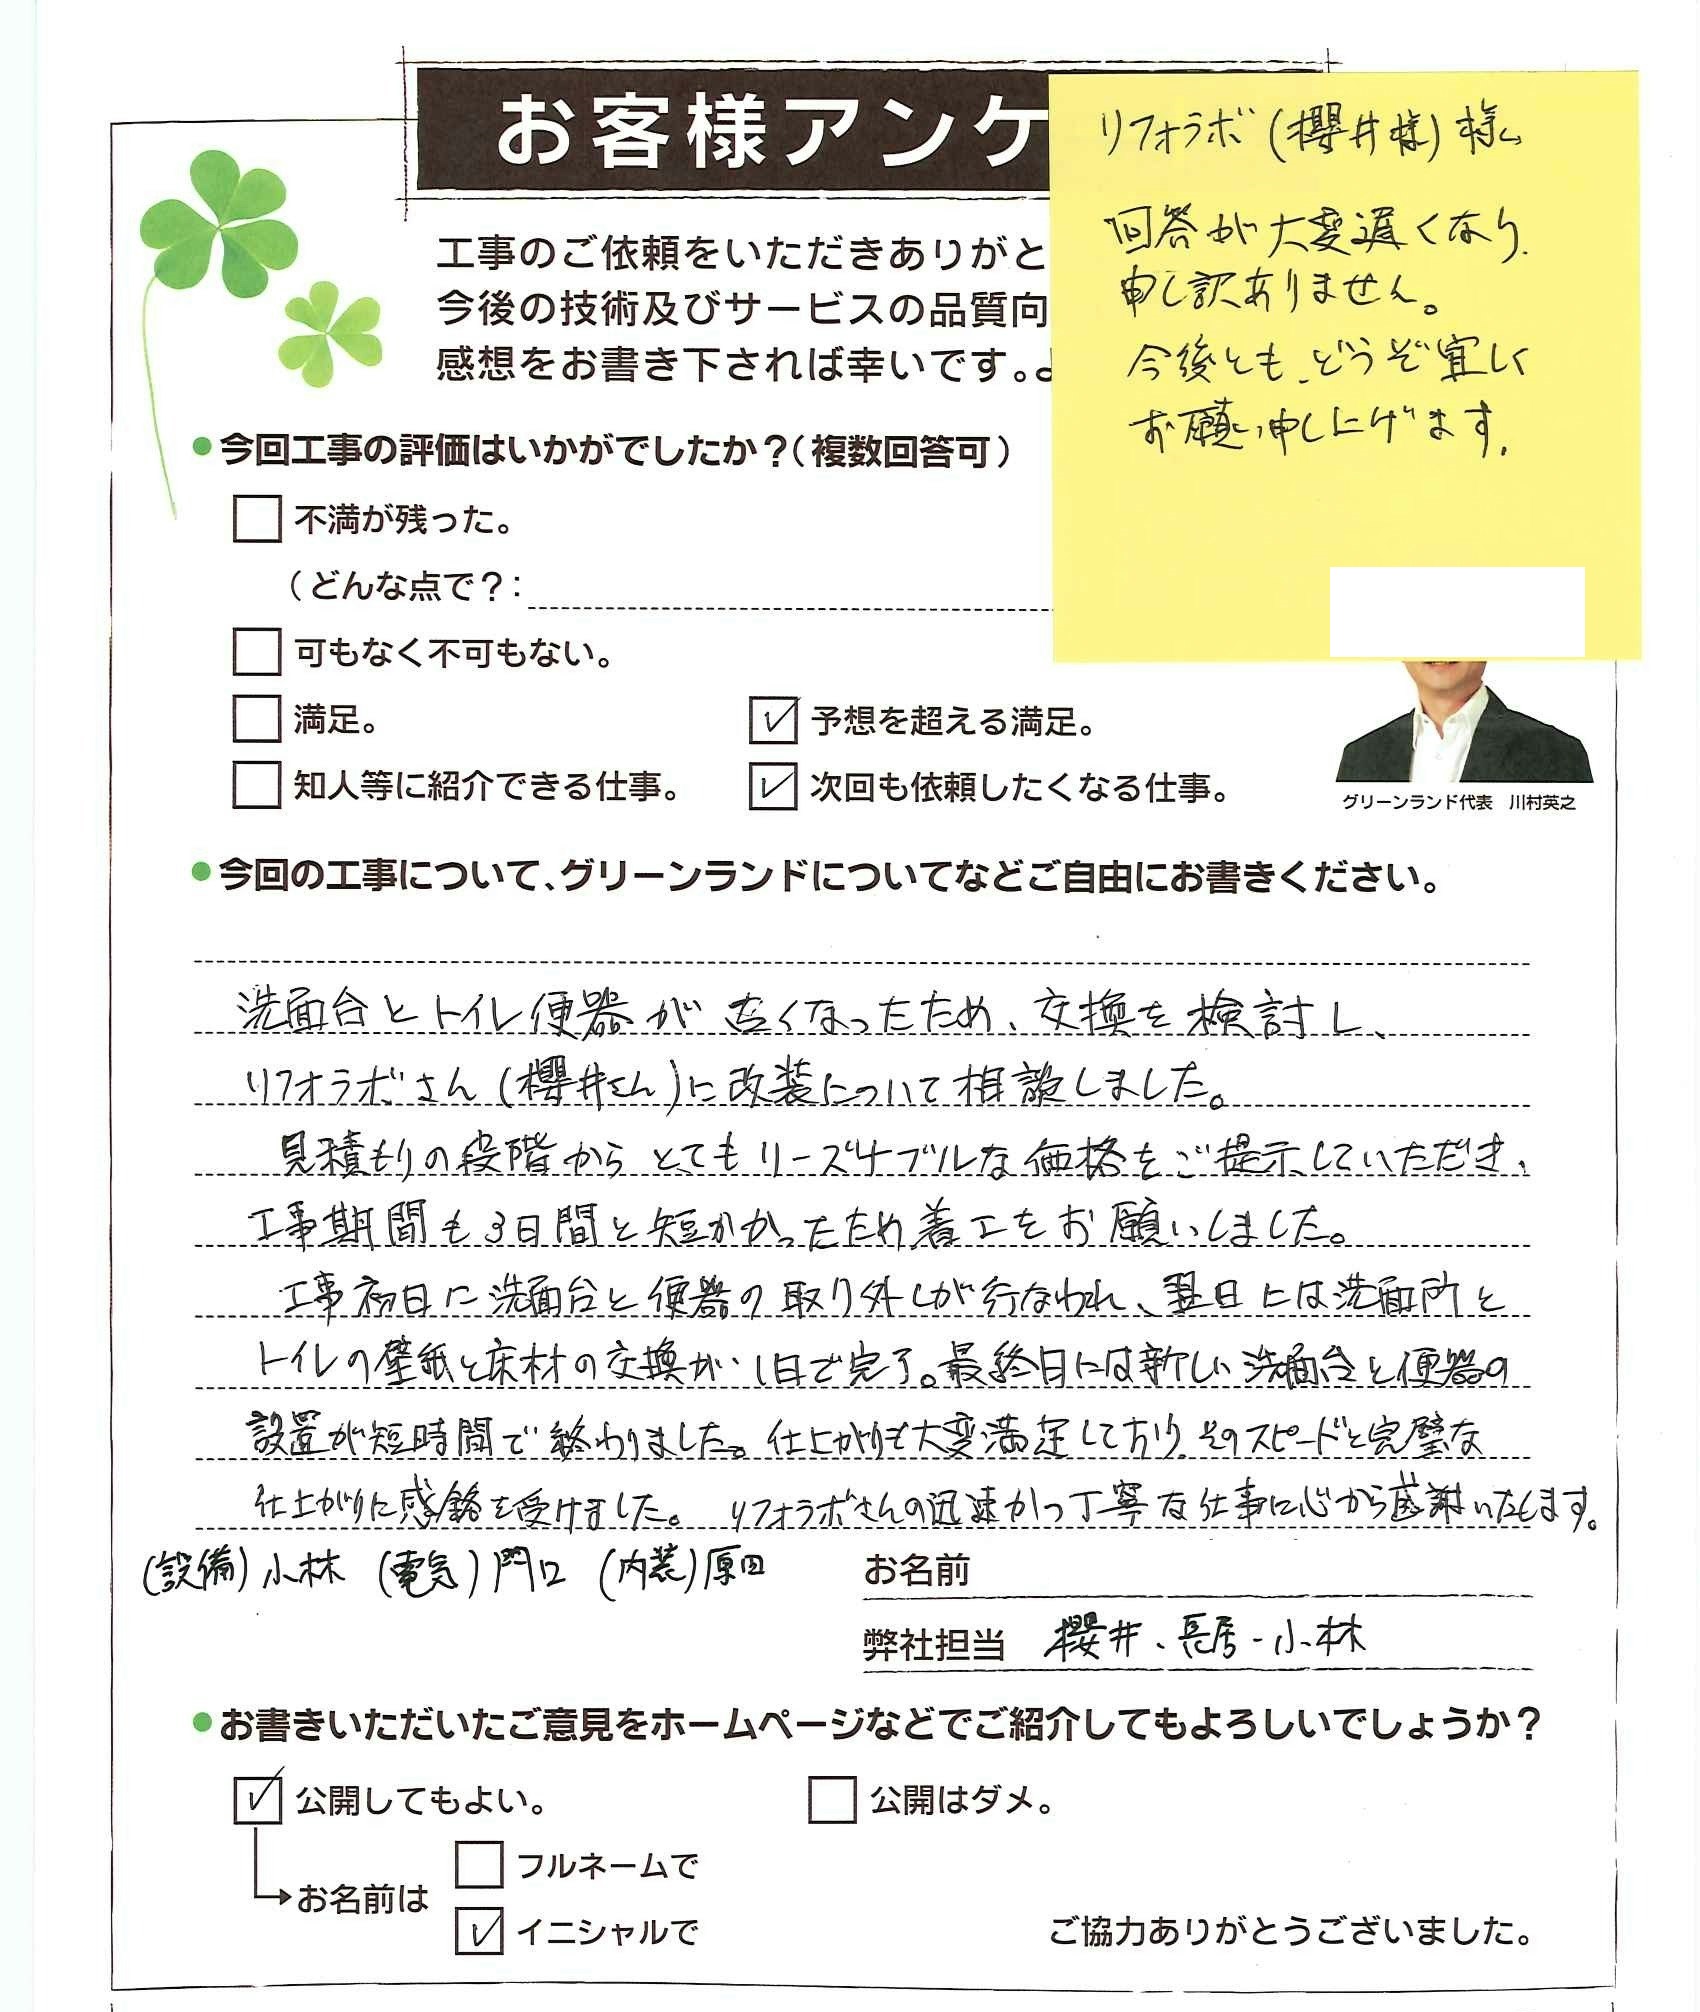 お客様アンケ
リフォラボ(櫻井様)様
回答が大変遅くなり、
申し訳ありません。
今後とも、どうぞ宜しく
お願い申し上げます。
工事のご依頼をいただきありがと
今後の技術及びサービスの品質向
感想をお書き下されば幸いです。よ
●今回工事の評価はいかがでしたか？(複数回答可)
不満が残った。
(どんな点で？:
可もなく不可もない。
満足。
☑予想を超える満足。
知人等に紹介できる仕事。
☑次回も依頼したくなる仕事。
グリーンランド代表 川村英之
●今回の工事について、グリーンランドについてなどご自由にお書きください。
洗面台とトイレ便器が古くなったため、交換を検討し、
リフォラボさん(櫻井さん)に改装について相談しました。
見積もりの段階からとてもリーズナブルな価格をご提示していただき、
工事期間も3日間と短かかったため着工をお願いしました。
工事初日に洗面台と便器の取り外しが行なわれ、翌日には洗面所と
トイレの壁紙と床材の交換が、1日で完了。最終日には新しい洗面台と便器の
設置が短時間で終わりました。仕上がりも大変満足しており、そのスピードと完璧な
仕上がりに感銘を受けました。リフォラボさんの迅速かつ丁寧な仕事に心から感謝いたします。
(設備)小林 (電気)門口 (内装)原田
お名前
弊社担当 櫻井、長房・小林
●お書きいただいたご意見をホームページなどでご紹介してもよろしいでしょうか？
☑公開してもよい。
公開はダメ。
フルネームで
お名前は
☑イニシャルで
ご協力ありがとうございました。